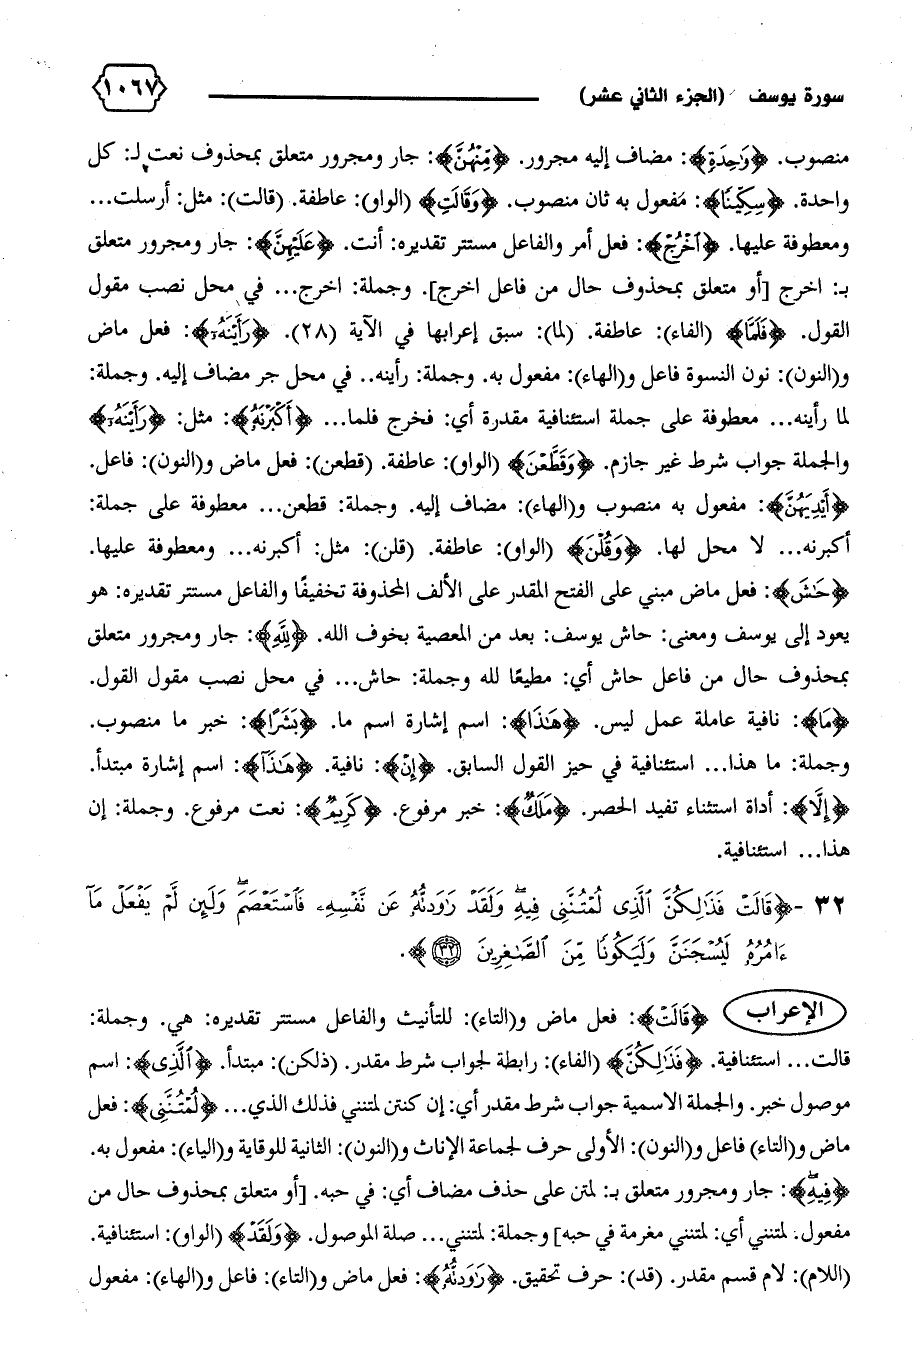 سورة يوسف (الجزء الثاني عشر) ١٠٦٧
منصوب. ﴿وَٰحِدَةٖ﴾: مضاف إليه مجرور. ﴿مِّنۡهُنَّ﴾: جار ومجرور متعلق بمحذوف نعت لـ: كل
واحدة. ﴿سِكِّينٗا﴾: مفعول به ثان منصوب. ﴿وَقَالَتِ﴾ (الواو): عاطفة. (قالت): مثل: أرسلت...
ومعطوفة عليها. ﴿ٱخۡرُجۡ﴾: فعل أمر والفاعل مستتر تقديره: أنت. ﴿عَلَيۡهِنَّ﴾: جار ومجرور متعلق
بـ: اخرج [أو متعلق بمحذوف حال من فاعل اخرج]. وجملة: اخرج... في محل نصب مقول
القول. ﴿فَلَمَّا﴾ (الفاء): عاطفة. (لما): سبق إعرابها في الآية (٢٨). ﴿رَأَيۡنَهُۥٓ﴾: فعل ماض
و(النون): نون النسوة فاعل و(الهاء): مفعول به. وجملة: رأينه.. في محل جر مضاف إليه. وجملة:
لما رأينه... معطوفة على جملة استئنافية مقدرة أي: فخرج فلما... ﴿أَكۡبَرۡنَهُۥ﴾: مثل: ﴿رَأَيۡنَهُۥٓ﴾
والجملة جواب شرط غير جازم. ﴿وَقَطَّعۡنَ﴾ (الواو): عاطفة. (قطعن): فعل ماض و(النون): فاعل.
﴿أَيۡدِيَهُنَّ﴾: مفعول به منصوب و(الهاء): مضاف إليه. وجملة: قطعن... معطوفة على جملة:
أكبرنه... لا محل لها. ﴿وَقُلۡنَ﴾ (الواو): عاطفة. (قلن): مثل: أكبرنه... ومعطوفة عليها.
﴿حَٰشَ﴾: فعل ماض مبني على الفتح المقدر على الألف المحذوفة تخفيفًا والفاعل مستتر تقديره: هو
يعود إلى يوسف ومعنى: حاش يوسف: بعد من المعصية بخوف الله. ﴿لِلَّهِ﴾: جار ومجرور متعلق
بمحذوف حال من فاعل حاش أي: مطيعًا لله وجملة: حاش... في محل نصب مقول القول.
﴿مَا﴾: نافية عاملة عمل ليس. ﴿هَٰذَا﴾: اسم إشارة اسم ما. ﴿بَشَرًا﴾: خبر ما منصوب.
وجملة: ما هذا... استئنافية في حيز القول السابق. ﴿إِنۡ﴾: نافية. ﴿هَٰذَآ﴾: اسم إشارة مبتدأ.
﴿إِلَّا﴾: أداة استثناء تفيد الحصر. ﴿مَلَكٞ﴾: خبر مرفوع. ﴿كَرِيمٞ﴾: نعت مرفوع. وجملة: إن
هذا... استئنافية.
٣٢ -﴿قَالَتۡ فَذَٰلِكُنَّ ٱلَّذِي لُمۡتُنَّنِي فِيهِۖ وَلَقَدۡ رَٰوَدتُّهُۥ عَن نَّفۡسِهِۦ فَٱسۡتَعۡصَمَۖ وَلَئِن لَّمۡ يَفۡعَلۡ مَآ
ءَامُرُهُۥ لَيُسۡجَنَنَّ وَلَيَكُونٗا مِّنَ ٱلصَّٰغِرِينَ ٣٢﴾.
الإعراب ﴿قَالَتۡ﴾: فعل ماض و(التاء): للتأنيث والفاعل مستتر تقديره: هي. وجملة:
قالت... استئنافية. ﴿فَذَٰلِكُنَّ﴾ (الفاء): رابطة لجواب شرط مقدر. (ذلكن): مبتدأ. ﴿ٱلَّذِي﴾: اسم
موصول خبر. والجملة الاسمية جواب شرط مقدر أي: إن كنتن لمتنني فذلك الذي... ﴿لُمۡتُنَّنِي﴾: فعل
ماض و(التاء) فاعل و(النون): الأولى حرف لجماعة الإناث و(النون): الثانية للوقاية و(الياء): مفعول به.
﴿فِيهِۖ﴾: جار ومجرور متعلق بـ: لمتن على حذف مضاف أي: في حبه. [أو متعلق بمحذوف حال من
مفعول: لمتنني أي: لمتنني مغرمة في حبه] وجملة: لمتنني... صلة الموصول. ﴿وَلَقَدۡ﴾ (الواو): استئنافية.
(اللام): لام قسم مقدر. (قد): حرف تحقيق. ﴿رَٰوَدتُّهُۥ﴾: فعل ماض و(التاء): فاعل و(الهاء): مفعول